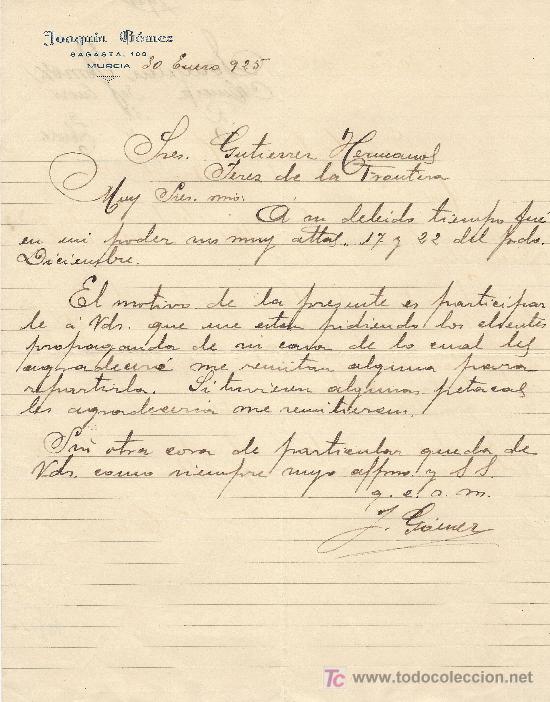 Joaquín Gómez
SAGASTA, 100
MURCIA
30 Enero 925
Sres. Gutierrez Hermanos
Jerez de la Frontera
Muy Sres. mio:
A su debido tiempo fué
en mi poder sus muy attas. 17 y 22 del pdo.
Diciembre.
El motivo de la presente es participar
le á Vds. que me estan pidiendo los clientes
propaganda de su casa de lo cual les
agradeceré me remitan alguna para
repartirla. Si tuvieran algunas petacas
les agradeceria me remitieran.
Sin otra cosa de particular queda de
Vds. como siempre suyo affmo. y S. S.
q. e. s. m.
J. Gómez
TC www.todocoleccion.net